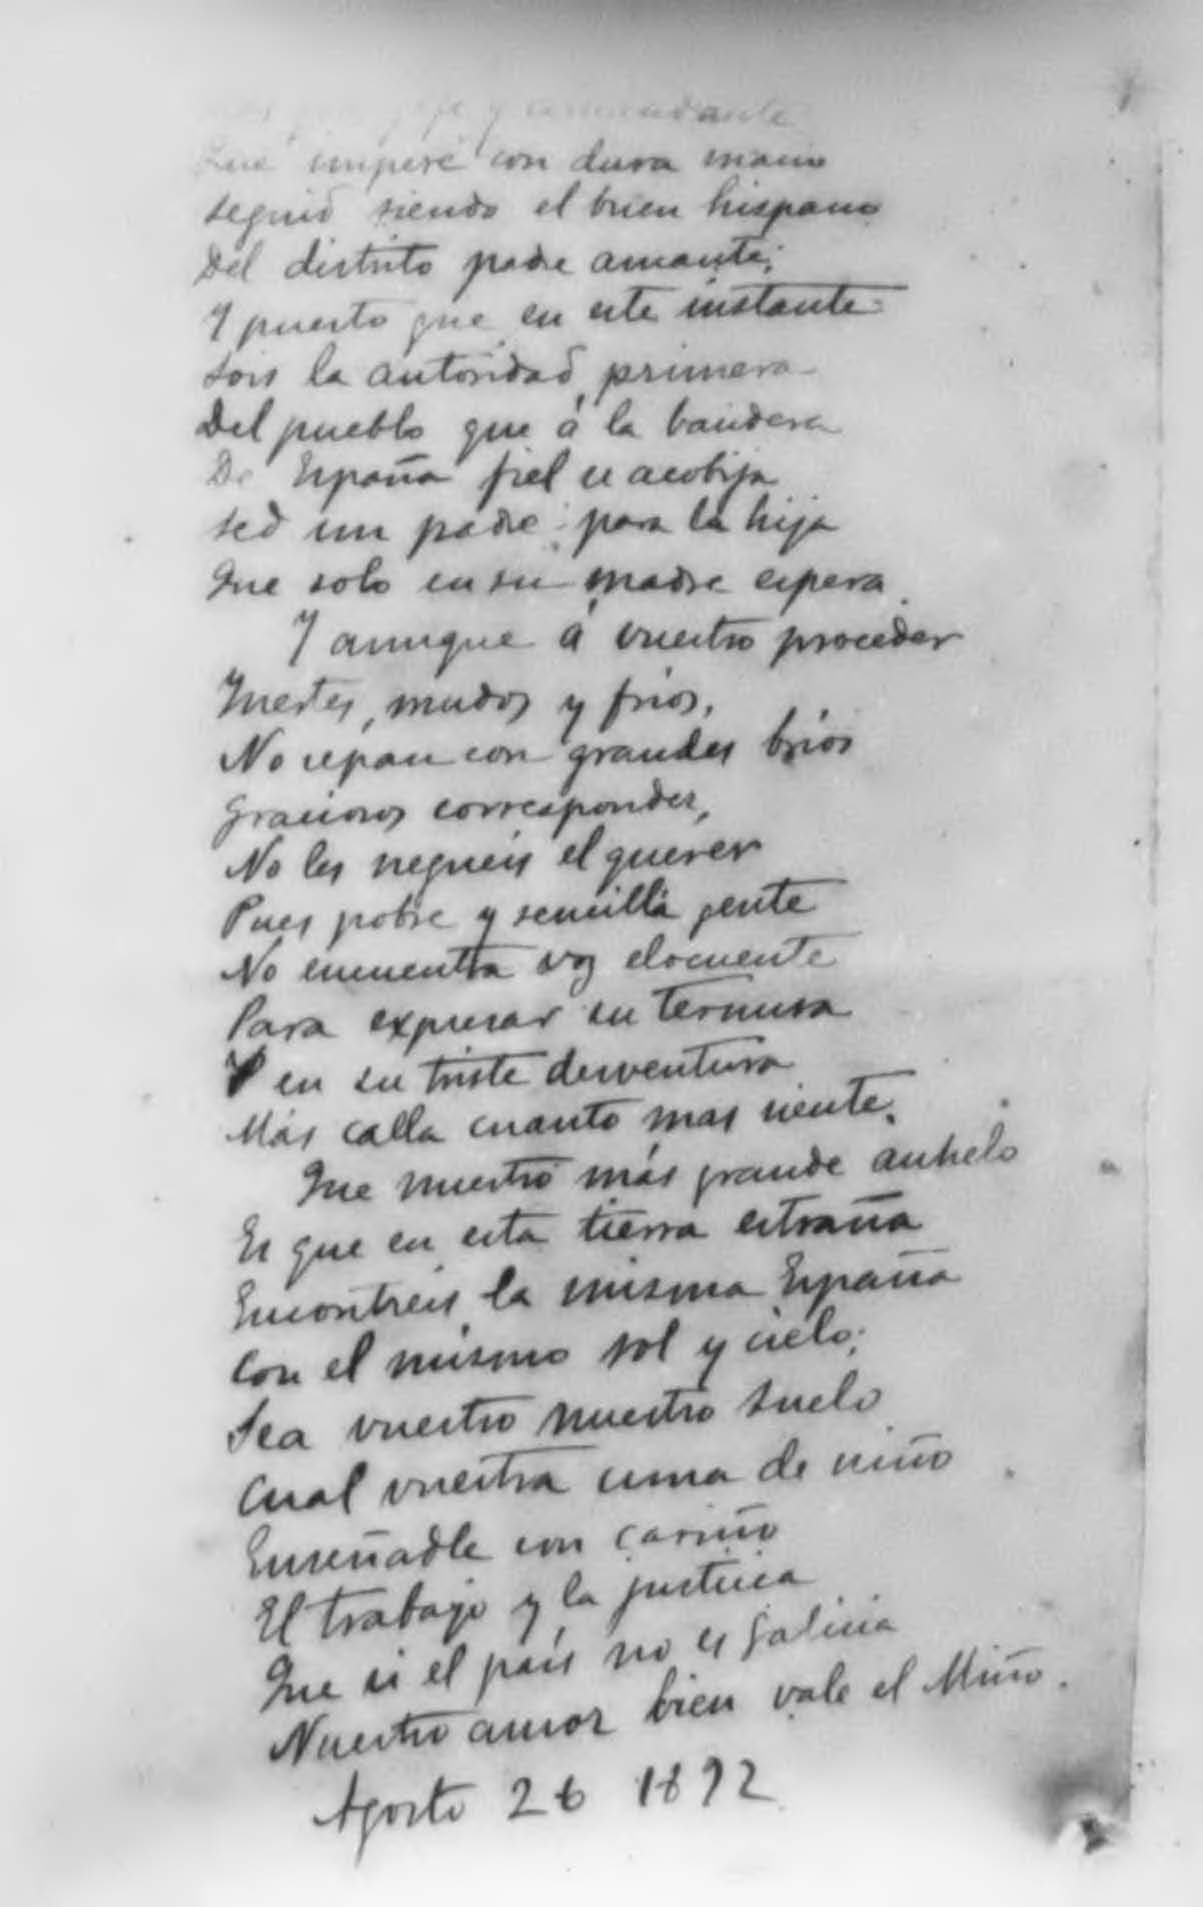 jefe y comandante
Que impere con dura mano
seguid siendo el buen hispano
Del distrito padre amante;
Y puesto que en este instante
sois la autoridad primera
Del pueblo que á la bandera
De España fiel se acobija
sed un padre para la hija
Que solo en su madre espera.
Y aunque á vuestro proceder
Inertes, mudos y frios,
No sepan con grandes bríos
Graciosos corresponder,
No les negueis el querer
Pues pobre y sencilla gente
No encuentra voz elocuente
Para expresar su ternura
Y en su triste desventura
Más calla cuanto mas siente.
Que nuestro más grande anhelo
Es que en esta tierra estraña
Encontreis la misma España
Con el mismo sol y cielo;
Sea vuestro nuestro suelo
Cual vuestra cuna de niño
Enseñadle con cariño
El trabajo y la justicia
Que si el país no es Galicia
Nuestro amor bien vale el Miño.
Agosto 26 1892